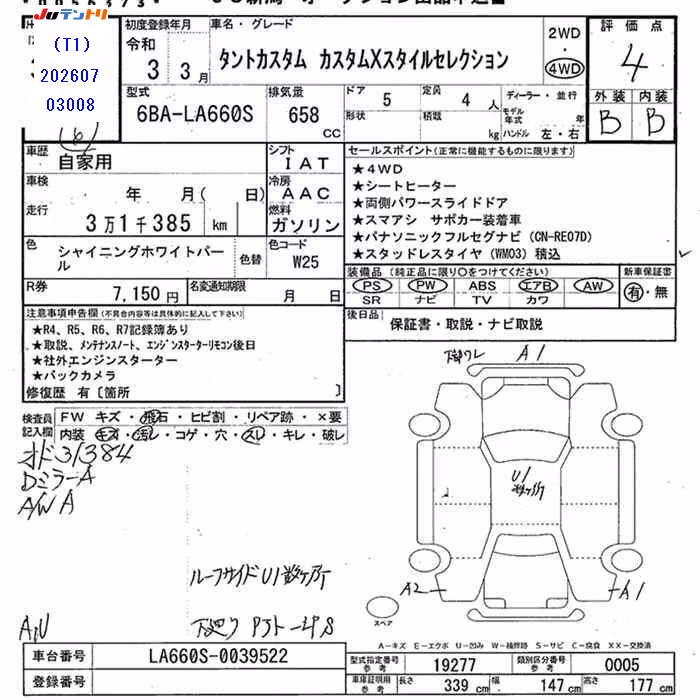 JUテントリ
(T1)
202607
03008
初度登録年月
令和
3 3月
車名・グレード
タントカスタム カスタムXスタイルセレクション
2WD
・
4WD
評価点
4
外装 内装
B B
型式
6BA-LA660S
排気量
658
CC
ドア
5
形状
定員
4 人
積載
kg
ディーラー・並行
モデル年式 年
ハンドル 左・右
車歴
自家用
シフト
IAT
車検
年 月( 日)
冷房
AAC
走行
3万1千385 km
燃料
ガソリン
色
シャイニングホワイトパール
色替
色コード
W25
R券
7,150円
名変通知期限
月 日
セールスポイント(正常に機能するものに限ります)
★4WD
★シートヒーター
★両側パワースライドドア
★スマアシ サポカー装着車
★パナソニックフルセグナビ (CN-RE07D)
★スタッドレスタイヤ (WM03) 積込
装備品 (純正品に限り○をつけてください)
PS PW ABS エアB AW
SR ナビ TV カワ
新車保証書
有・無
後日品
保証書・取説・ナビ取説
注意事項申告欄(不具合内容等は具体的に記入して下さい)
★R4、R5、R6、R7記録簿あり
★取説、メンテナンスノート、エンジンスターターリモコン後日
★社外エンジンスターター
★バックカメラ
修復歴 有〔箇所 〕
検査員記入欄
FW キズ・飛石・ヒビ割・リペア跡・×要
内装 キズ・汚レ・コゲ・穴・スレ・キレ・破レ
オド31384
Dミラー A
A/W A
ルーフサイドU1数ヶ所
下廻り
下廻りサビ
A1
U1
数ヶ所
A2
A1
スペア
A-キズ E-エクボ U-凹み W-補修跡 S-サビ C-腐食 XX-交換済
車台番号
LA660S-0039522
登録番号
型式指定番号参考
19277
類別区分番号参考
0005
車庫証明用参考
長さ 339 cm
幅 147 cm
高さ 177 cm